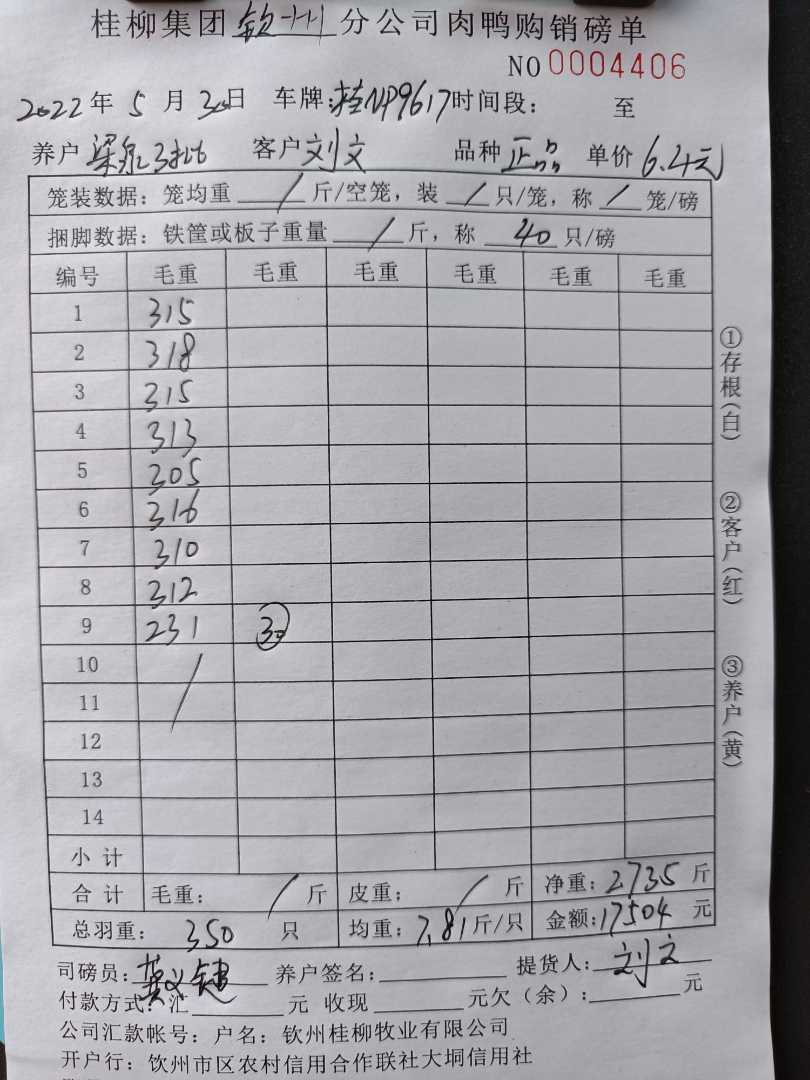 桂柳集团 钦州 分公司肉鸭购销磅单
NO 0004406
2022年 5 月 30日 车牌:桂NP9617 时间段: 至
养户 梁泉 3批 客户 刘文 品种 正品 单价 6.4元
笼装数据: 笼均重 / 斤/空笼, 装 / 只/笼, 称 / 笼/磅
捆脚数据: 铁筐或板子重量 / 斤, 称 40 只/磅
编号 毛重 毛重 毛重 毛重 毛重 毛重
1 315
2 318
3 315
4 313
5 305
6 316
7 310
8 312
9 231 30
10 /
11
12
13
14
小 计
合 计 毛重: / 斤 皮重: / 斤 净重: 2735 斤
总羽重: 350 只 均重: 7.81 斤/只 金额: 17504 元
司磅员: 养户签名: 提货人: 刘文
付款方式: 汇 元 收现 元欠(余): 元
公司汇款帐号: 户名: 钦州桂柳牧业有限公司
开户行: 饮州市区农村信用合作联社大垌信用社
①存根(白)
②客户(红)
③养户(黄)